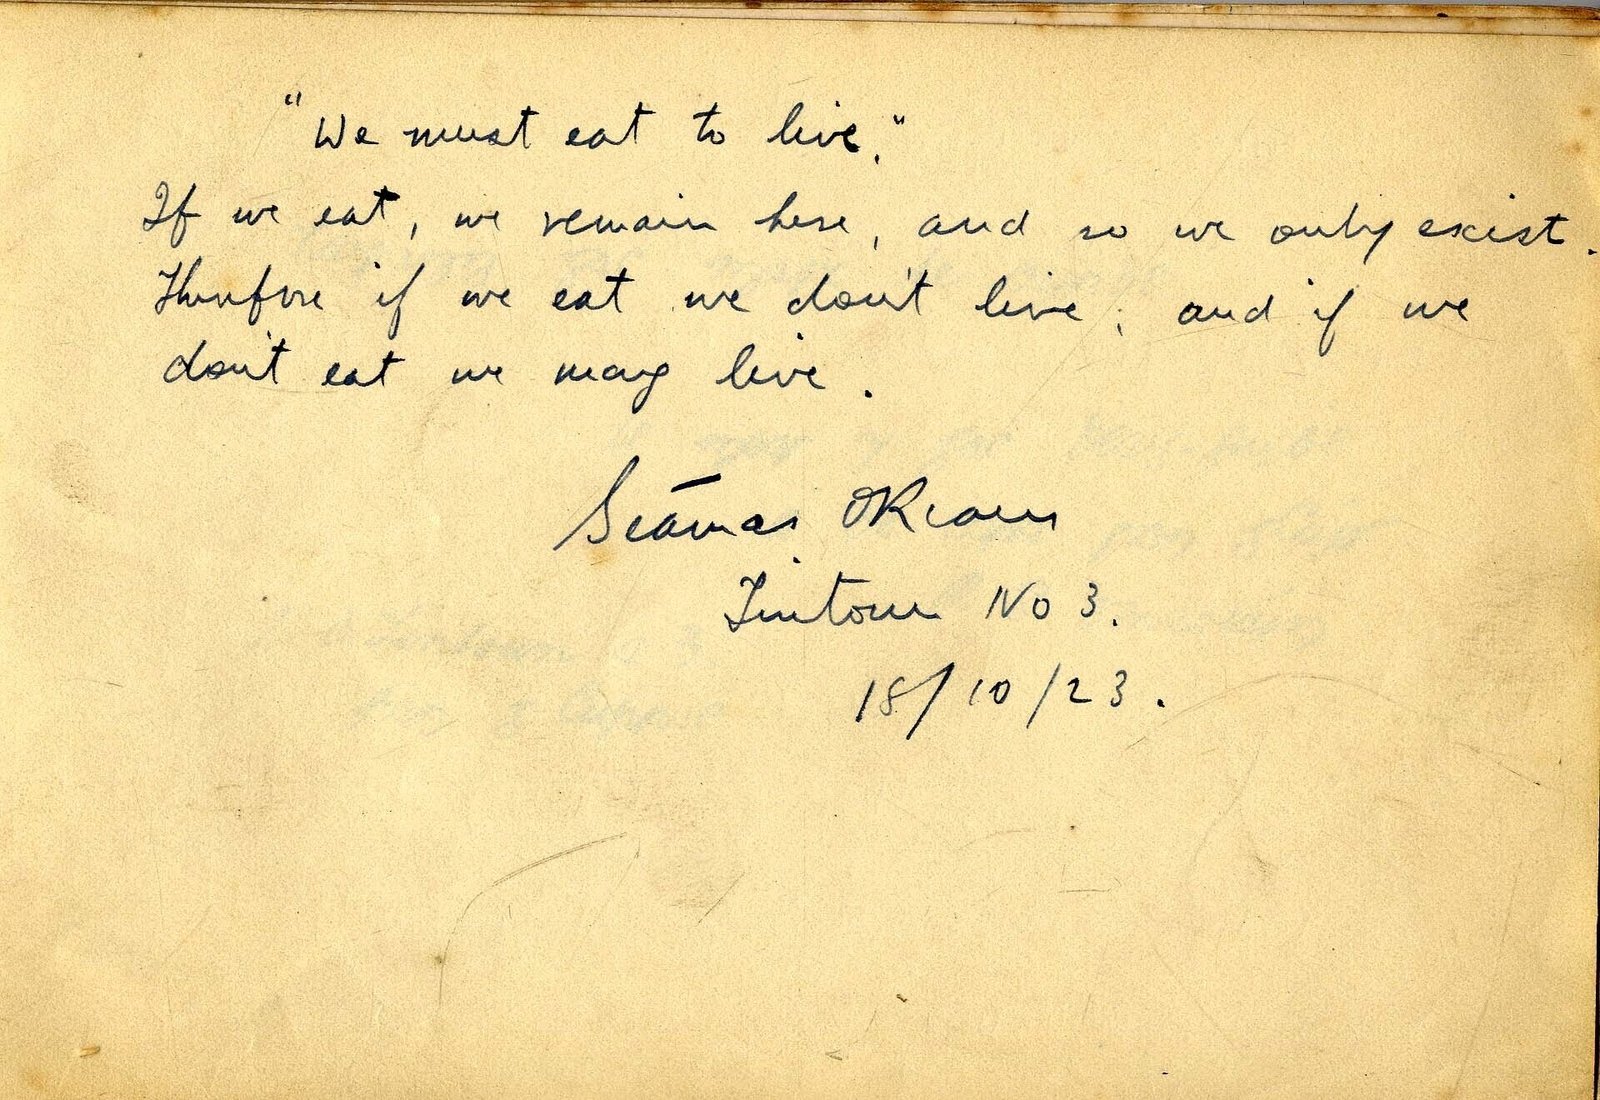 "We must eat to live."
If we eat, we remain here, and so we only exist.
Therefore if we eat we don't live, and if we
don't eat we may live.
Seámas
Tintown No 3.
18/10/23.